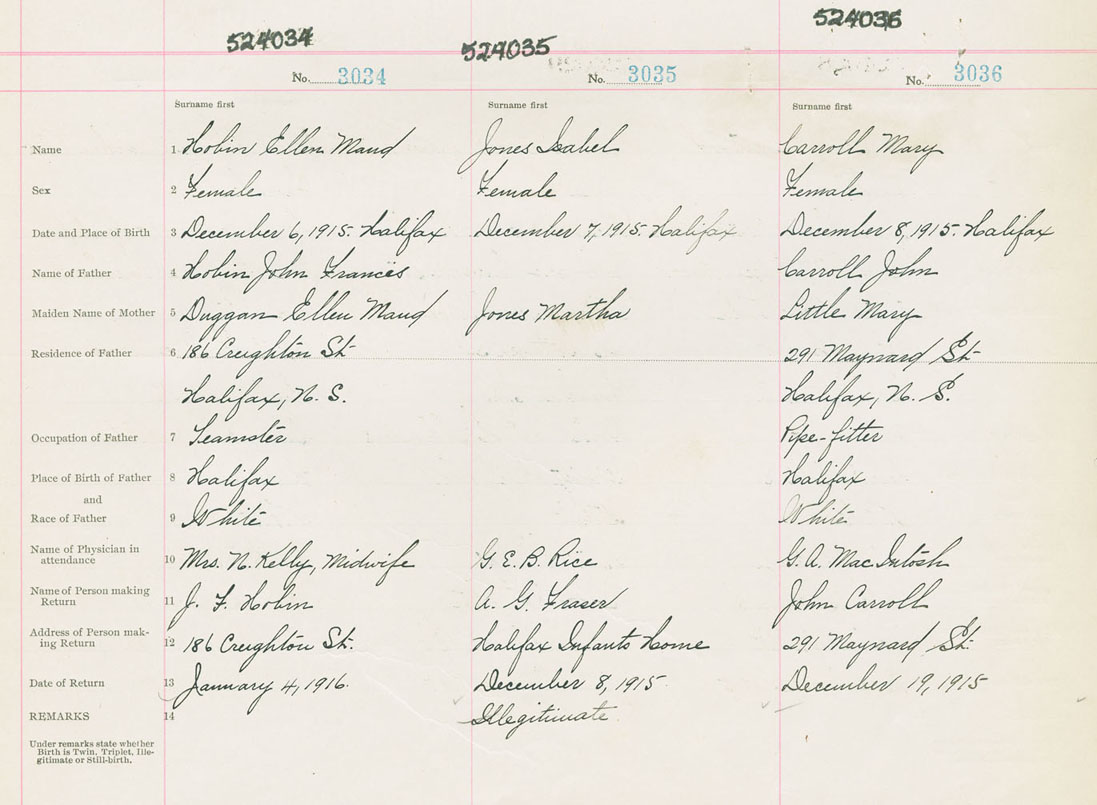 524034 524035 524036
No. 3034 No. 3035 No. 3036
Surname first Surname first Surname first
Name 1 Hobin Ellen Maud Jones Isabel Carroll Mary
Sex 2 Female Female Female
Date and Place of Birth 3 December 6, 1915. Halifax December 7, 1915. Halifax December 8, 1915. Halifax
Name of Father 4 Hobin John Francis Carroll John
Maiden Name of Mother 5 Duggan Ellen Maud Jones Martha Little Mary
Residence of Father 6 186 Creighton St. 291 Maynard St.
Halifax, N. S. Halifax, N. S.
Occupation of Father 7 Teamster Pipe-fitter
Place of Birth of Father 8 Halifax Halifax
and
Race of Father 9 White White
Name of Physician in
attendance 10 Mrs. N. Kelly, Midwife G. E. B. Rice G. A. MacIntosh
Name of Person making
Return 11 J. F. Hobin A. G. Fraser John Carroll
Address of Person mak-
ing Return 12 186 Creighton St. Halifax Infants Home 291 Maynard St.
Date of Return 13 January 4, 1916. December 8, 1915. December 19, 1915
REMARKS 14 Illegitimate
Under remarks state whether
Birth is Twin, Triplet, Ille-
gitimate or Still-birth.